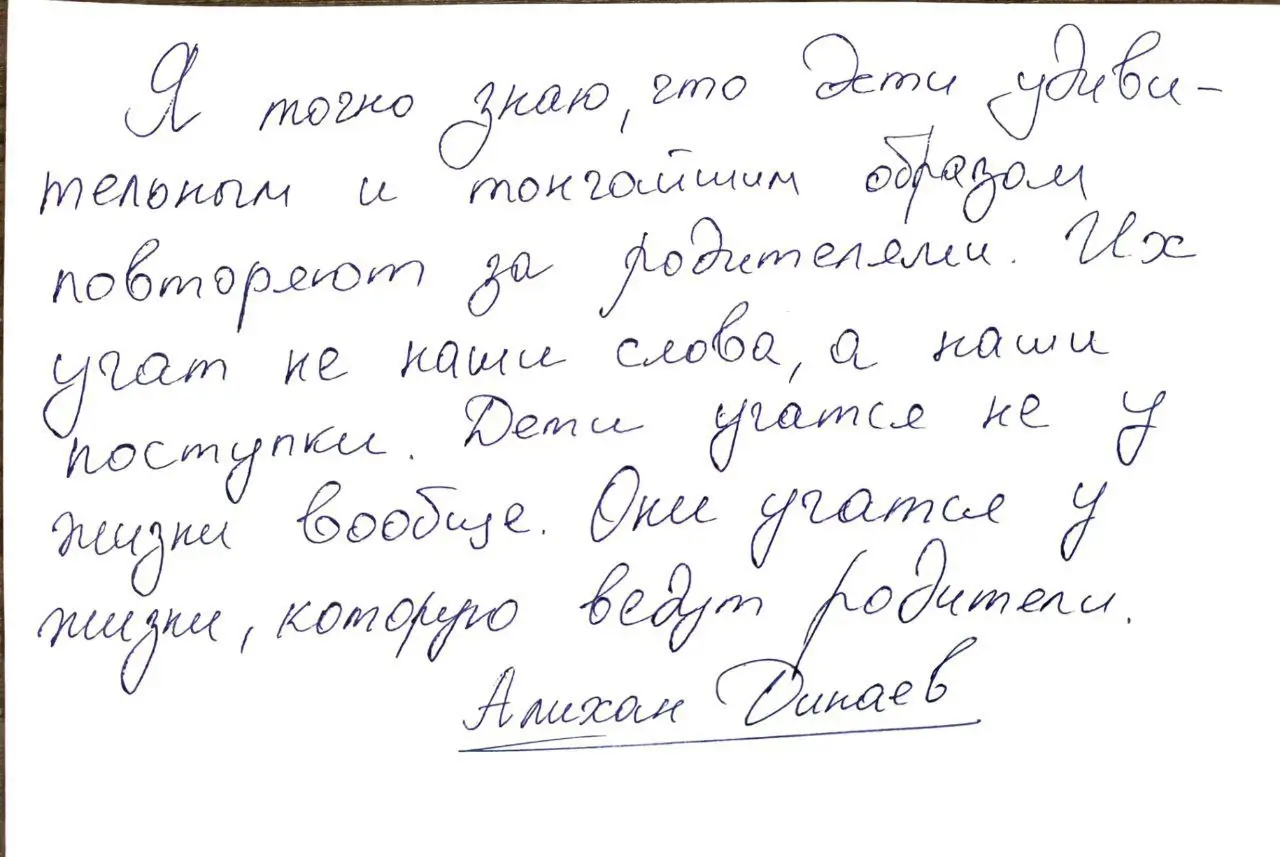 Я точно знаю, что дети удиви-
тельным и тончайшим образом
повторяют за родителями. Их
учат не наши слова, а наши
поступки. Дети учатся не у
жизни вообще. Они учатся у
жизни, которую ведут родители.
Алихан Динаев